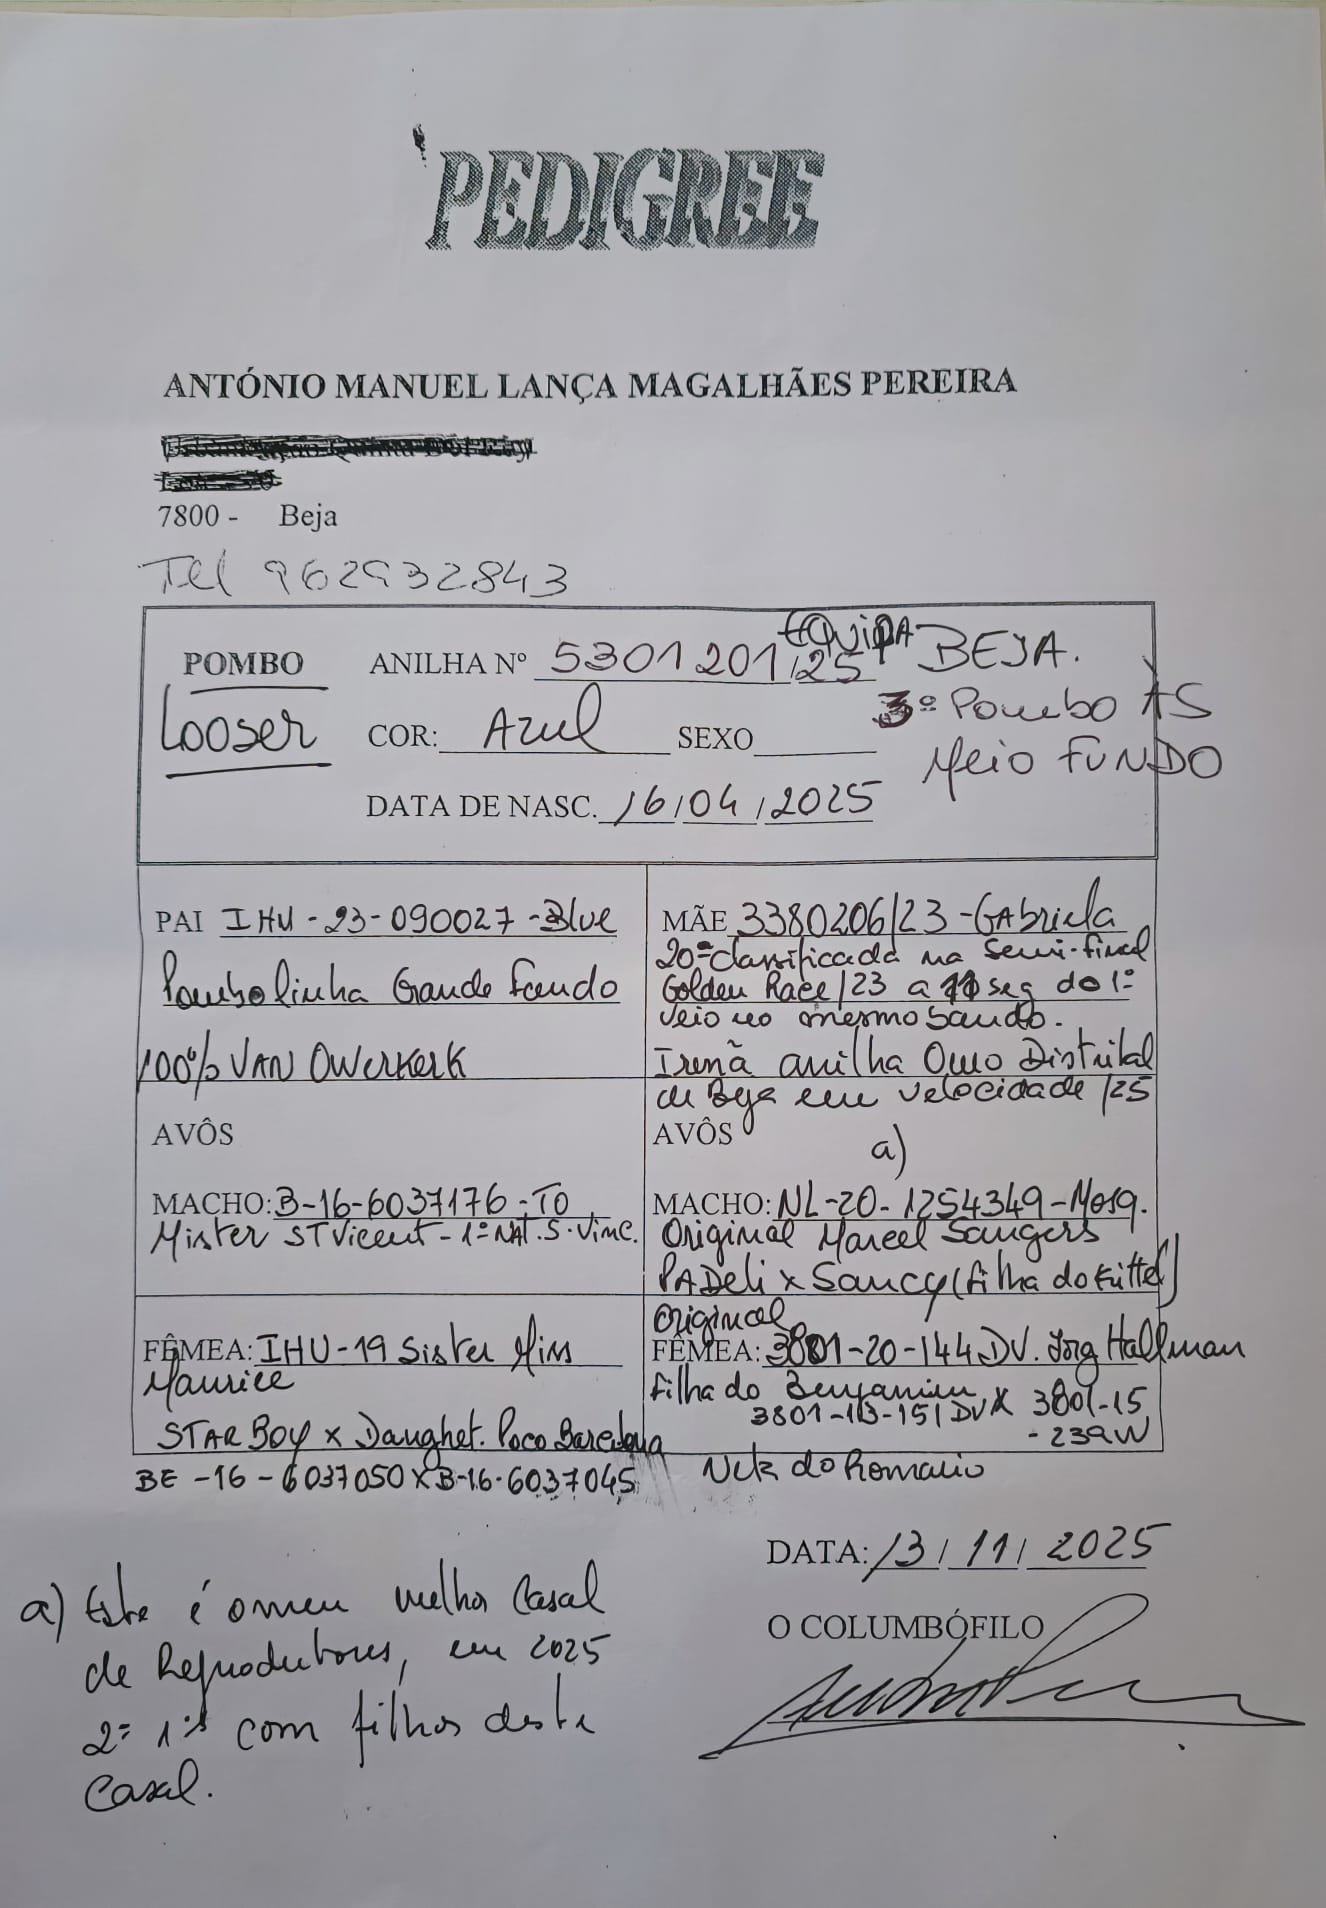 PEDIGREE
ANTÓNIO MANUEL LANÇA MAGALHÃES PEREIRA
7800 - Beja
Tel 962932843
POMBO
Looser
ANILHA Nº 5301201/25
EQUIPA BEJA.
3º Pombo AS
Meio FUNDO
COR: Azul SEXO
DATA DE NASC. 16/04/2025
PAI IHU-23-090027-Blue
Pombolinha Grande Fundo
100% VAN OWERKERK
AVÔS
MACHO: B-16-6037176-TO
Mister ST Vicent - 1º NAT. S. Vinc.
FÊMEA: IHU-19 Sister Miss
Maurice
STAR BOY x Daughet. Poco Barcelona
BE-16-6037050 x B-16-6037045
MÃE 3380206/23 - Gabriela
20ª classificada na Semi-final
Golden Race/23 a 11 seg do 1º
veio no mesmo bando.
Irmã anilha Ouro Distrital
de Beja em velocidade /25
AVÔS
a)
MACHO: NL-20-1254349-Mosq.
Original Marcel Sangers
PADeli x Saucy (filha do Kittel)
original
FÊMEA: 3801-20-144 DV. Jorg Hallman
filha do Benjamim
3801-13-151 DV x 3801-15
-239W
Neta do Romario
DATA: 13/11/2025
O COLUMBÓFILO
a) Este é o meu melhor Casal
de Reprodutores, em 2025
2º 1ºs com filhos deste
Casal.